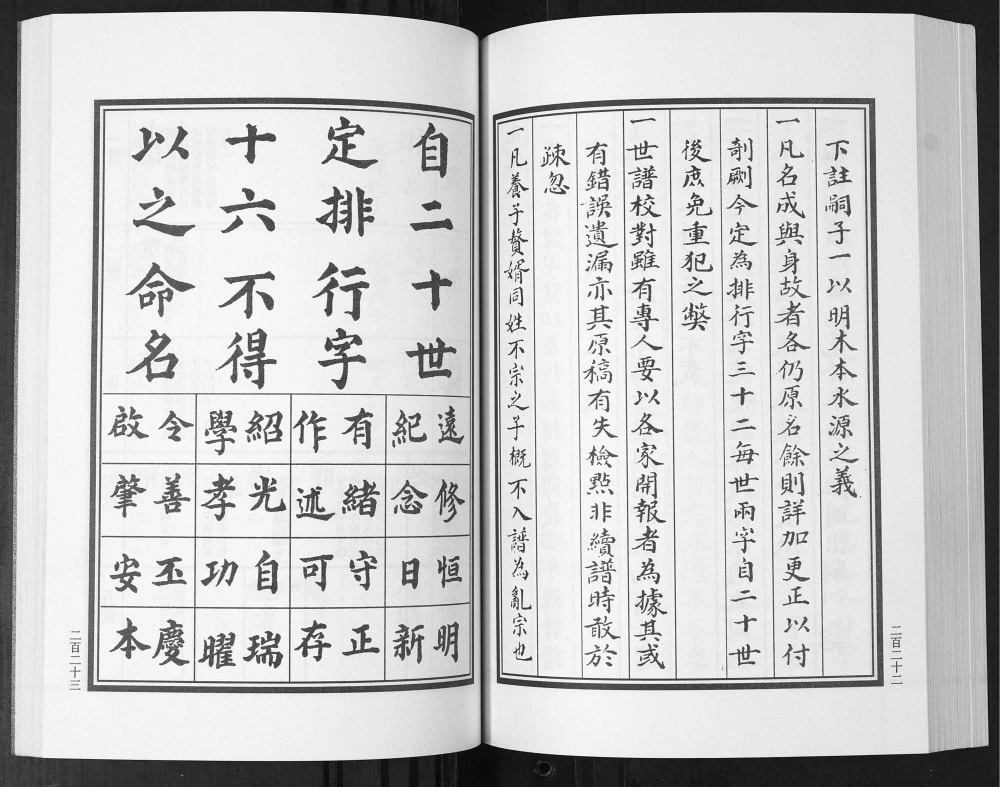 下註嗣子一以明木本水源之義
一凡名成與身故者各仍原名餘則詳加更正以付
剞劂今定為排行字三十二每世兩字自二十世
後庶免重犯之獘
一世譜校對雖有專人要以各家開報者為據其或
有錯誤遺漏亦其原稿有失檢點非續譜時敢於
疎忽
一凡養子贅婿同姓不宗之子概不入譜為亂宗也
二百二十二
自二十世
定排行字
十六不得
以之命名
遠修恒明
紀念日新
有緒守正
作述可存
紹光自瑞
學孝功曜
令善丕慶
啟肇安本
二百二十三